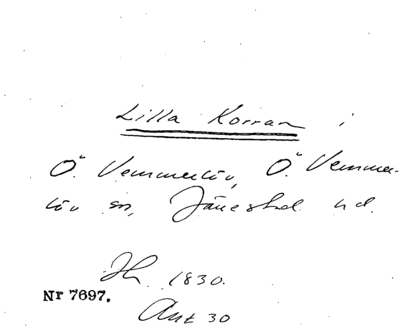 Lilla Korran i
Ö. Vemmerlöv, Ö. Vemmer-
löv sn, Järrestad hd.
Hn 1830.
Nr 7697.
Ant 30